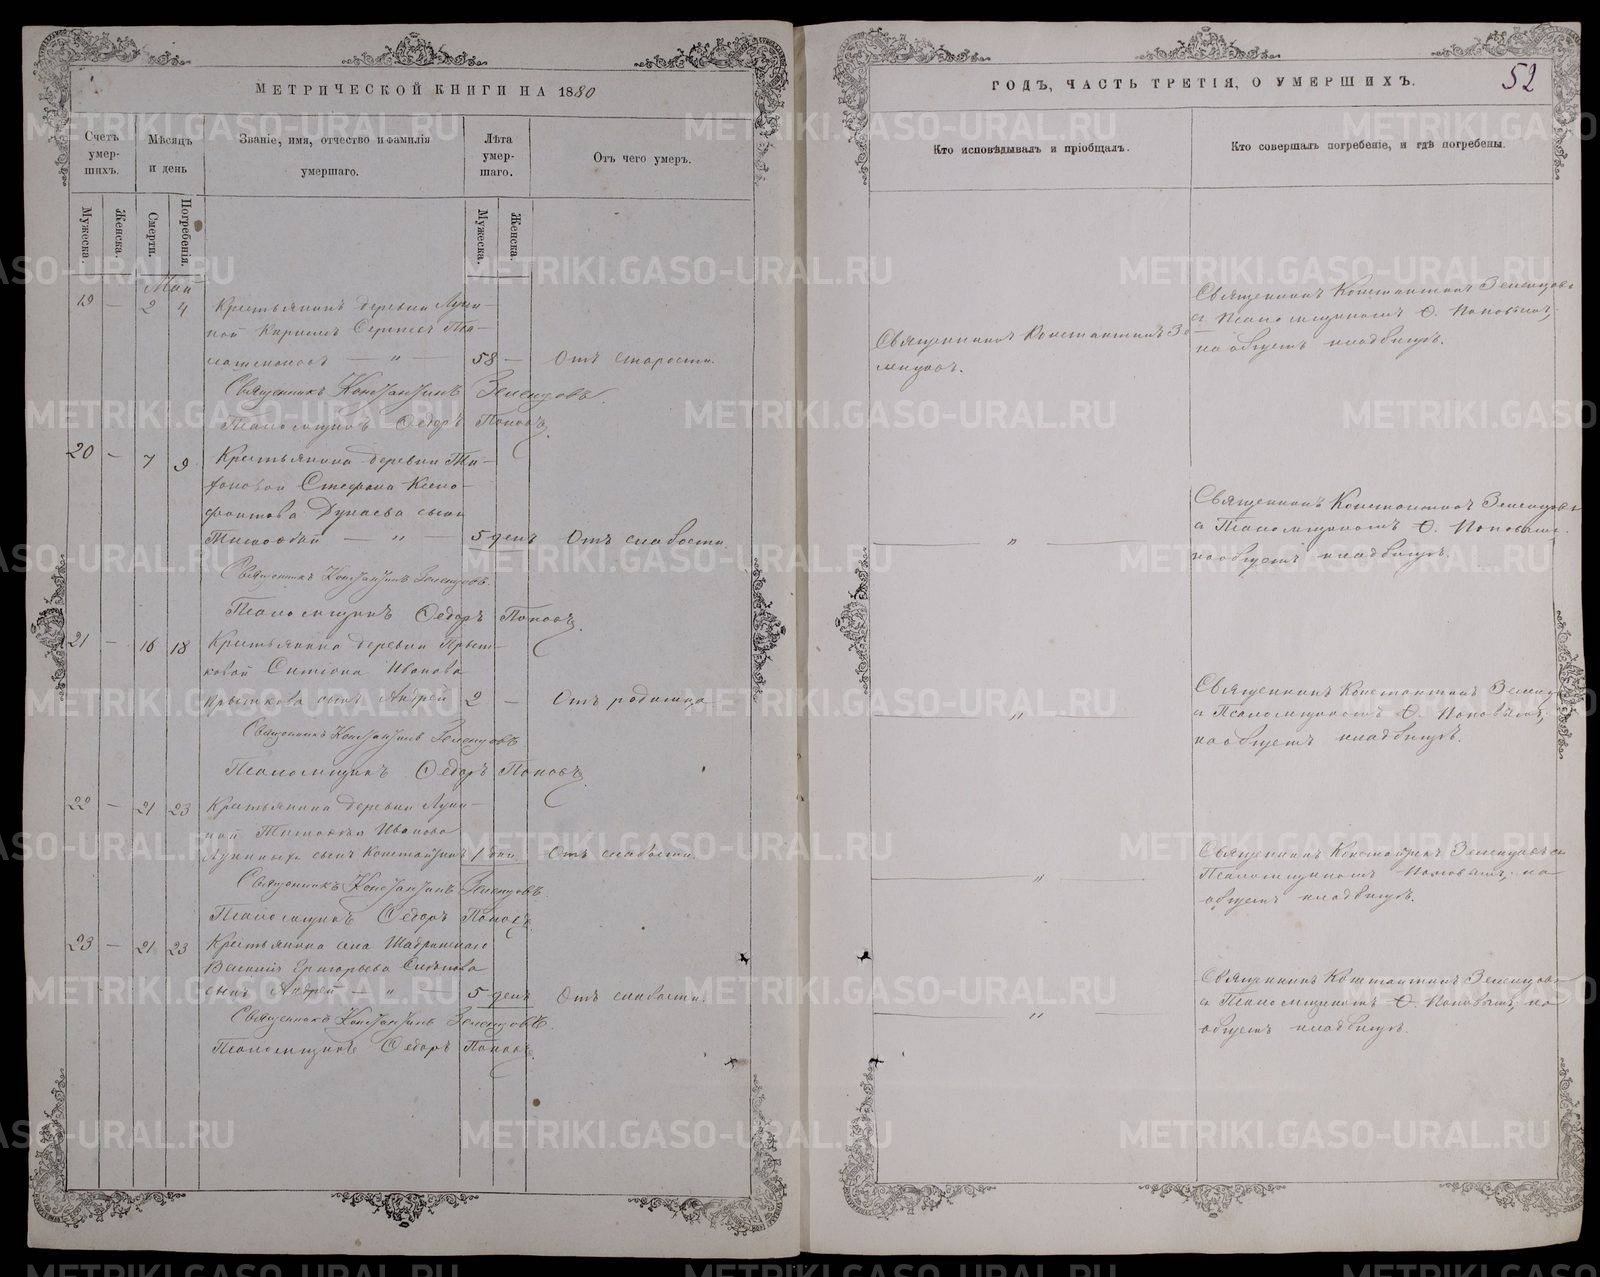 МЕТРИЧЕСКОЙ КНИГИ НА 1880
Счетъ умер-шихъ.
Мѣсяцъ и день
Званіе, имя, отчество и фамилія умершаго.
Лѣта умер-шаго.
Отъ чего умеръ.
Мужеска.
Женска.
Смерти.
Погребенія.
Мужеска.
Женска.
Май
19 — 2 4 Крестьянинъ деревни Луни-
ной
58 — Отъ старости.
Священникъ Константинъ Зеленцовъ.
Псаломщикъ Ѳедоръ Поповъ.
20 — 7 9 Крестьянина деревни
Стефана Ксено-
фонтова Дунаева сынъ
Тимоѳей — „ — 5 день Отъ слабости.
Священникъ Константинъ Зеленцовъ
Псаломщикъ Ѳедоръ Поповъ.
21 — 16 18 Крестьянина деревни
Симеона Иванова
сынъ Андрей 2 — Отъ родимца
Священникъ Константинъ Зеленцовъ
Псаломщикъ Ѳедоръ Поповъ
22 — 21 23 Крестьянина деревни Луни-
ной Тимоѳея Иванова
сынъ Константинъ 1 дни Отъ слабости.
Священникъ Константинъ Зеленцовъ.
Псаломщикъ Ѳедоръ Поповъ.
23 — 21 23 Крестьянина села
Григорьева
сынъ Андрей — „ — 5 день Отъ слабости.
Священникъ Константинъ Зеленцовъ.
Псаломщикъ Ѳедоръ Поповъ.
ГОДЪ, ЧАСТЬ ТРЕТІЯ, О УМЕРШИХЪ.
52
Кто исповѣдывалъ и пріобщалъ.
Кто совершалъ погребеніе, и гдѣ погребены.
Священникъ Константинъ Зе-
ленцовъ.
Священникъ Константинъ Зеленцовъ
съ Псаломщикомъ Ѳ. Поповымъ,
на общемъ кладбищѣ.
„
Священникъ Константинъ Зеленцовъ
съ Псаломщикомъ Ѳ. Поповымъ.
на общемъ кладбищѣ.
„
Священникъ Константинъ
съ Псаломщикомъ Ѳ. Поповымъ,
на общемъ кладбищѣ.
„
Священникъ Константинъ Зеленцовъ съ
Псаломщикомъ Поповымъ, на
общемъ кладбищѣ.
„
Священникъ Константинъ Зеленцовъ
съ Псаломщикомъ Ѳ. Поповымъ, на
общемъ кладбищѣ.
METRIKI.GASO-URAL.RU